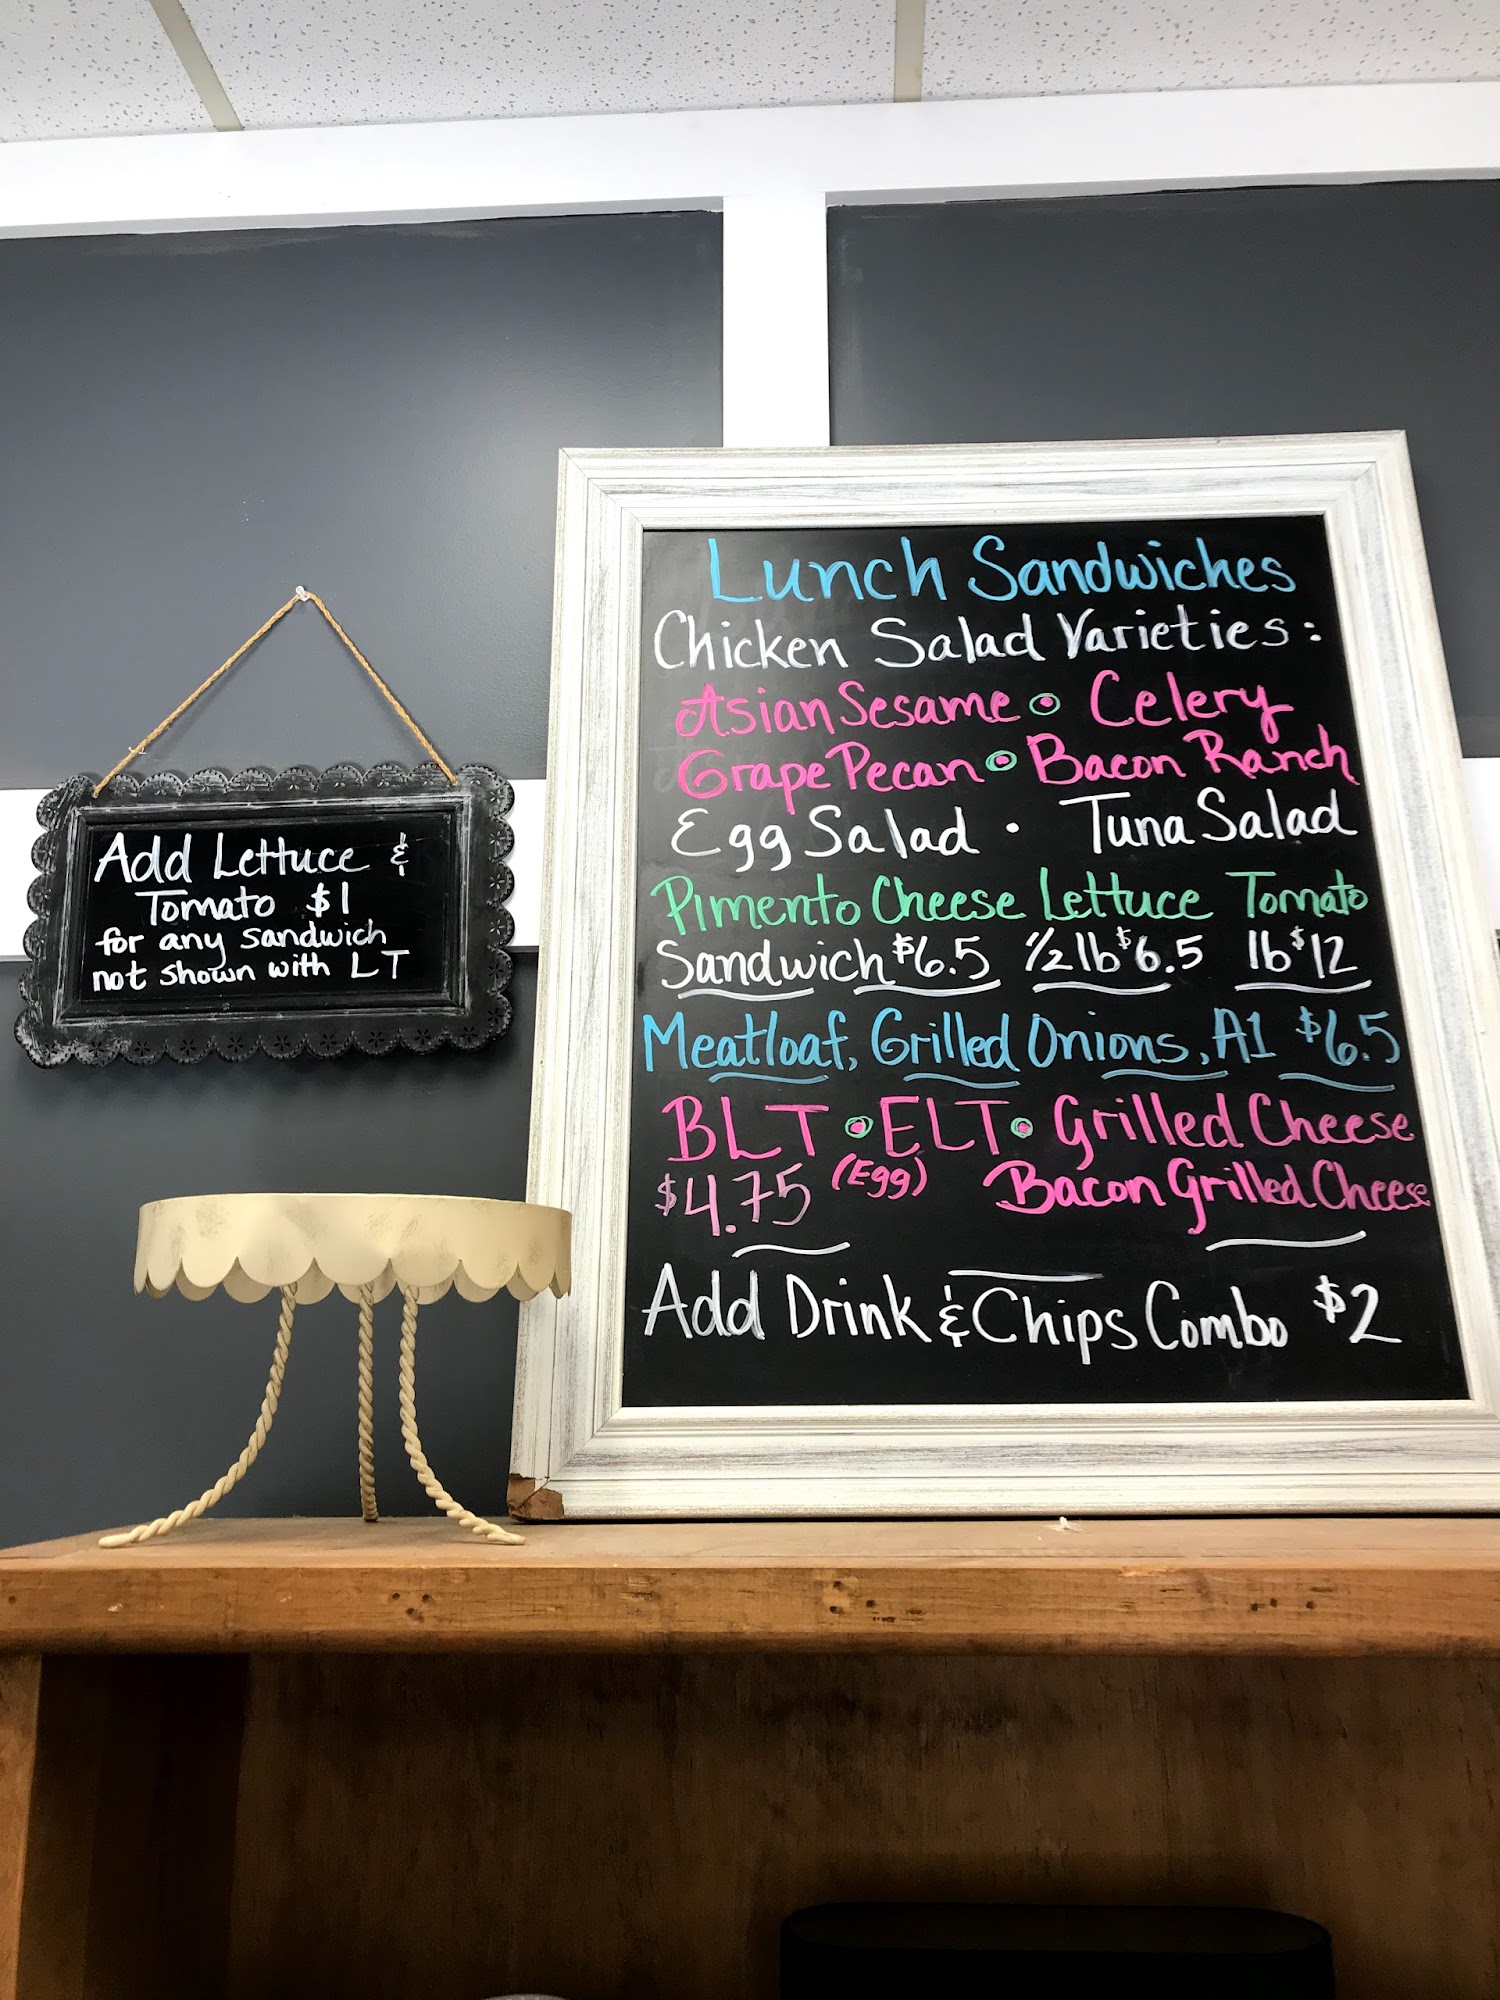 Add Lettuce &
Tomato $1
for any sandwich
not shown with LT
Lunch Sandwiches
Chicken Salad Varieties:
Asian Sesame • Celery
Grape Pecan • Bacon Ranch
Egg Salad • Tuna Salad
Pimento Cheese Lettuce Tomato
Sandwich $6.5 1/2 lb $6.5 lb $12
Meatloaf, Grilled Onions, A1 $6.5
BLT • ELT • Grilled Cheese
$4.75 (Egg) Bacon Grilled Cheese
Add Drink & Chips Combo $2